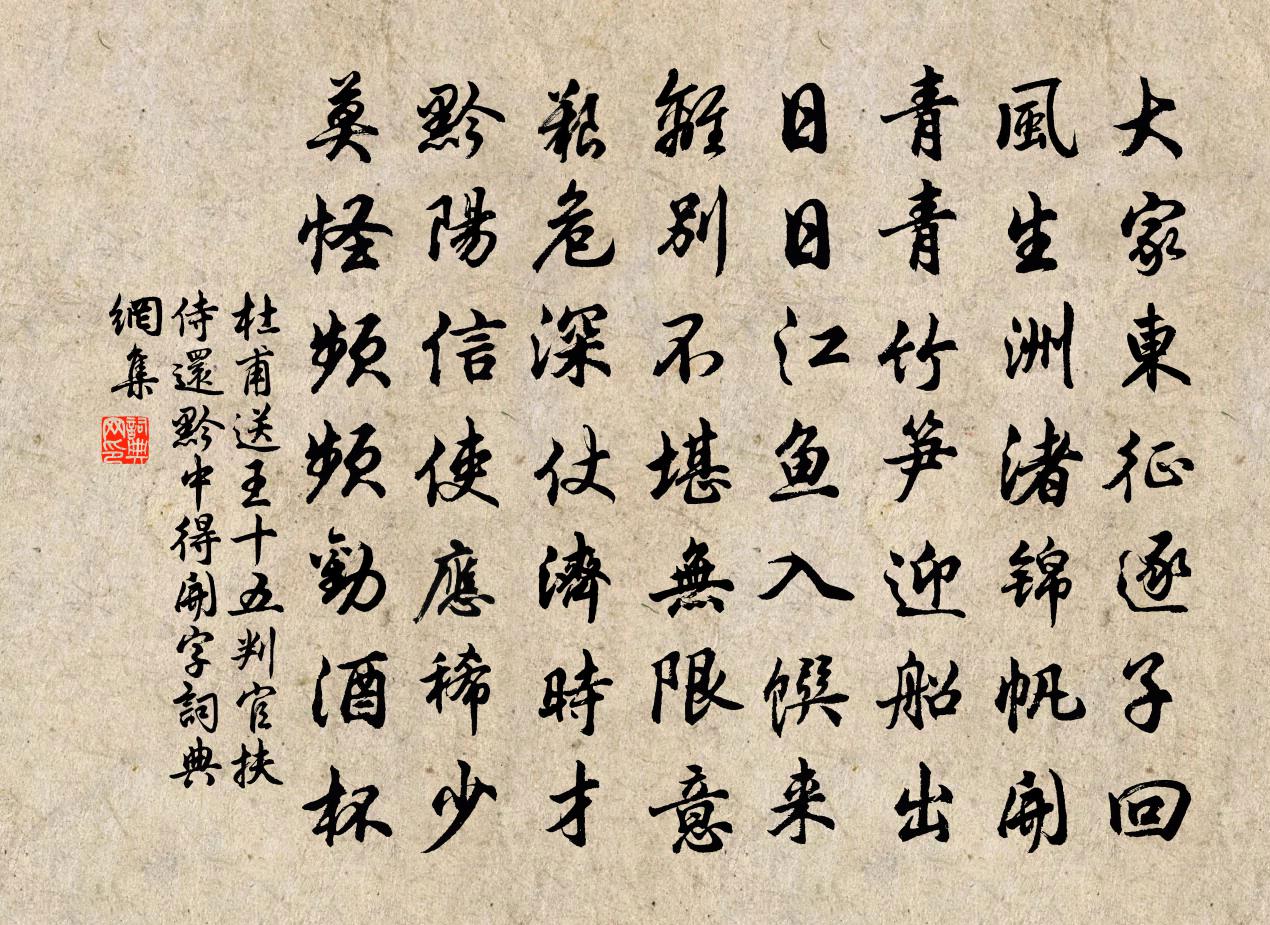 大家東征逐子回
風生洲渚锦帆開
青青竹笋迎船出
日日江鱼入馔来
離別不堪無限意
艱危深仗濟時才
黔陽信使應稀少
莫怪频频勸酒杯
杜甫送王十五判官扶
侍還黔中得開字詞典
網集
詞典
网印